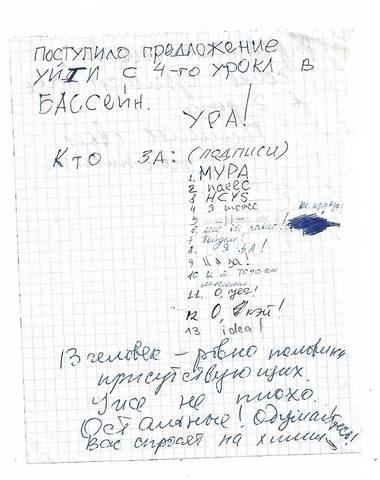 ПОСТУПИЛО ПРЕДЛОЖЕНИЕ
УЙТИ С 4-ГО УРОКА В
БАССЕЙН.
УРА!
КТО ЗА: (подписи)
1. МУРА
2 паес
3 HCYS
4 Я тоже
5 -||-
6 мне всё равно!
7 Пойдём!
8. Я ЗА!
9 И я за!
10 и я того же
мнения
11. О, yes!
12 О, кэй!
13 idea!
13 человек – ровно половина
присутствующих.
Уже не плохо.
Остальные! Одумайтесь!
Вас спросят на химии